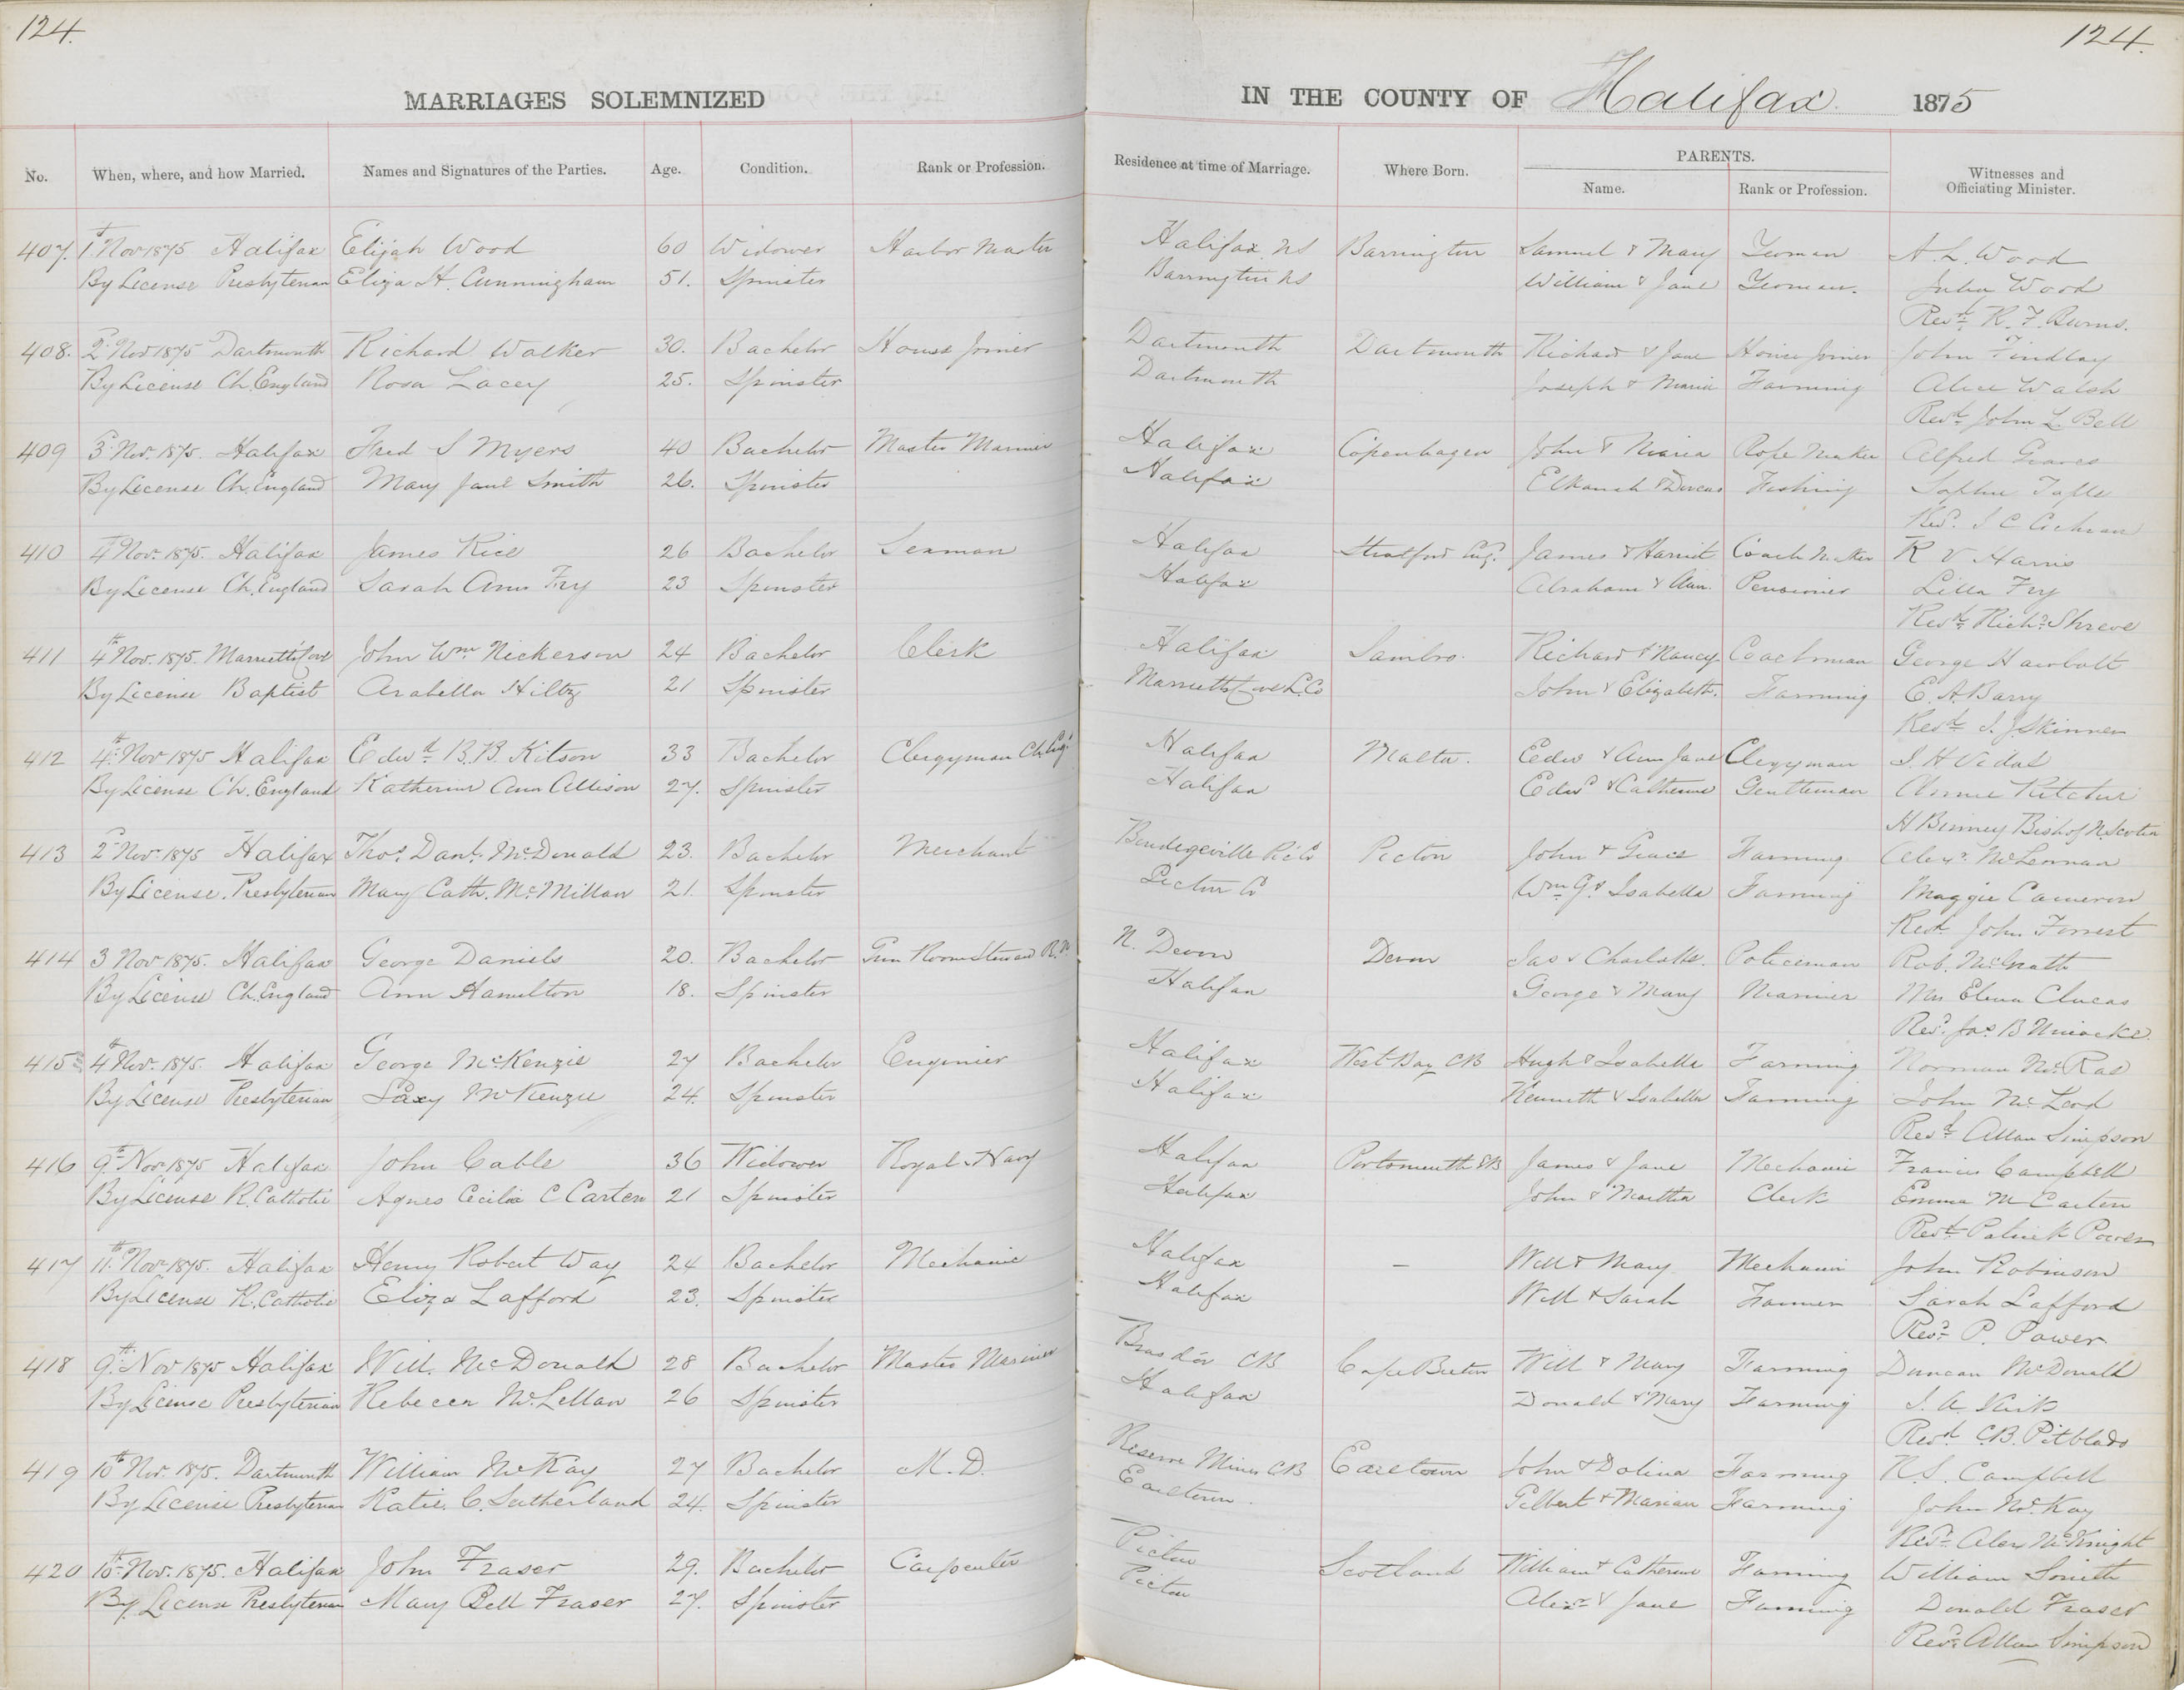 124.
124.
MARRIAGES SOLEMNIZED
IN THE COUNTY OF Halifax 1875
No. When, where, and how Married. Names and Signatures of the Parties. Age. Condition. Rank or Profession. Residence at time of Marriage. Where Born. PARENTS. Name. Rank or Profession. Witnesses and Officiating Minister.
407. 1st Nov 1875 Halifax Elijah Wood 60 Widower Harbor Master Halifax NS Barrington Samuel & Mary Yeoman A. L. Wood
By License Presbyterian Eliza H. Cunningham 51. Spinster Barrington NS William & Jane Yeoman. Julia Wood
Revd. R. F. Burns.
408. 2d Nov 1875 Dartmouth Richard Walker 30. Bachelor House Joiner Dartmouth Dartmouth Richard & Jane House Joiner John Findlay
By License Ch. England Rosa Lacey 25. Spinster Dartmouth Joseph & Maria Farming Alice Walsh
Revd. John L. Bell
409 3d Nov. 1875. Halifax Fred S Myers 40 Bachelor Master Mariner Halifax Copenhagen John & Maria Rope Maker Alfred Graves
By License Ch. England Mary Jane Smith 26. Spinster Halifax Elkanah & Dorcas Fishing Sophie
Revd. J C Cochran
410 4th Nov. 1875. Halifax James Rice 26 Bachelor Seaman Halifax Stratford Eng. James & Harriet Coach Maker R V Harris
By License Ch. England Sarah Ann Fry 23 Spinster Halifax Abraham & Ann. Pensioner Lilla Fry
Revd. Richd. Shreve
411 4th Nov. 1875. Marriotts Cove John Wm Nickerson 24 Bachelor Clerk Halifax Sambro. Richard & Nancy Coachman George Hawbolt
By License Baptist Arabella Hiltz 21 Spinster Marriotts Cove L. Co John & Elizabeth. Farming E. A. Barry
Revd. I. J Skinner
412 4th Nov 1875 Halifax Edwd B. B. Kitson 33 Bachelor Clergyman Ch. Eng. Halifax Malta. Edw & Ann Jane Clergyman J. H Vidal
By License Ch. England Katherine Ann Allison 27. Spinster Halifax Edwd & Catherine Gentleman Annie Ritchie
H Binney Bishop N. Scotia
413 2d Nov. 1875 Halifax Thos. Danl. McDonald 23. Bachelor Merchant Pic Co Pictou John & Grace Farming Alexr. McLennan
By License. Presbyterian Mary Cath. McMillan 21. Spinster Pictou Co Wm G. & Isabella Farming Maggie Cameron
Revd. John Forrest
414 3 Nov 1875. Halifax George Daniels 20. Bachelor Gun Room Steward R.N. N. Devon Devon Jas & Charlotte. Policeman Rob. McGrath
By License Ch. England Ann Hamilton 18. Spinster Halifax George & Mary Mariner Mrs Elena Clucas
Revd. Jas B Uniacke.
415 4th Nov. 1875. Halifax George McKenzie 27 Bachelor Enginier Halifax West Bay CB Hugh & Isabella Farming Norman McRae
By License Presbyterian Laxy McKenzie 24. Spinster Halifax Kenneth & Isabella Farming John McLeod
Revd. Allan Simpson
416 9th Nov. 1875 Halifax John Cable 36 Widower Royal Navy Halifax Portsmouth GB James & Jane Mechanic Francis Campbell
By License R. Catholic Agnes Cecilia C Carten 21 Spinster Halifax John & Martha Clerk Emma M Carten
Revd. Patrick Power
417 11th Nov. 1875. Halifax Henry Robert Way 24 Bachelor Mechanic Halifax – Will & Mary Mechanic John Robinson
By License R. Catholic Eliza Lafford 23. Spinster Halifax Will & Sarah Farmer Sarah Lafford
Revd. P. Power
418 9th Nov 1875 Halifax Will. McDonald 28 Bachelor Master Mariner Bras d'or CB Cape Breton Will & Mary Farming Duncan McDonald
By License Presbyterian Rebecca McLellan 26 Spinster Halifax Donald & Mary Farming J. A.
Revd. C.B. Pitblado
419 10th Nov. 1875. Dartmouth William McKay 27 Bachelor M.D. Reserve Mines CB Earltown John & Dolina Farming K. S. Campbell
By License Presbyterian Katie. C. Sutherland 24. Spinster Earltown. Gilbert & Marian Farming John McKay
Revd. Alex McKnight
420 10th Nov. 1875. Halifax John Fraser 29. Bachelor Carpenter Pictou Scotland William & Catherine Farming William Smith
By License Presbyterian Mary Bell Fraser 27. Spinster Pictou Alexr. & Jane Farming Donald Fraser
Revd. Allan Simpson